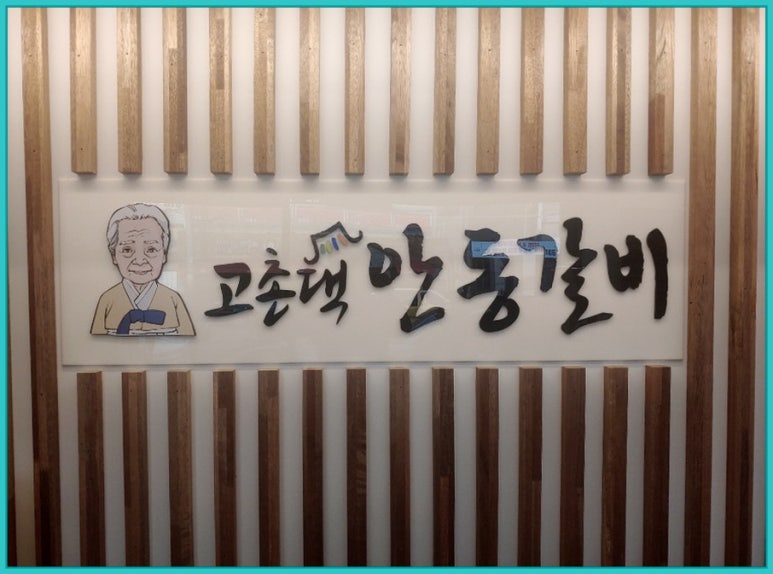 고촌댁 안동갈비